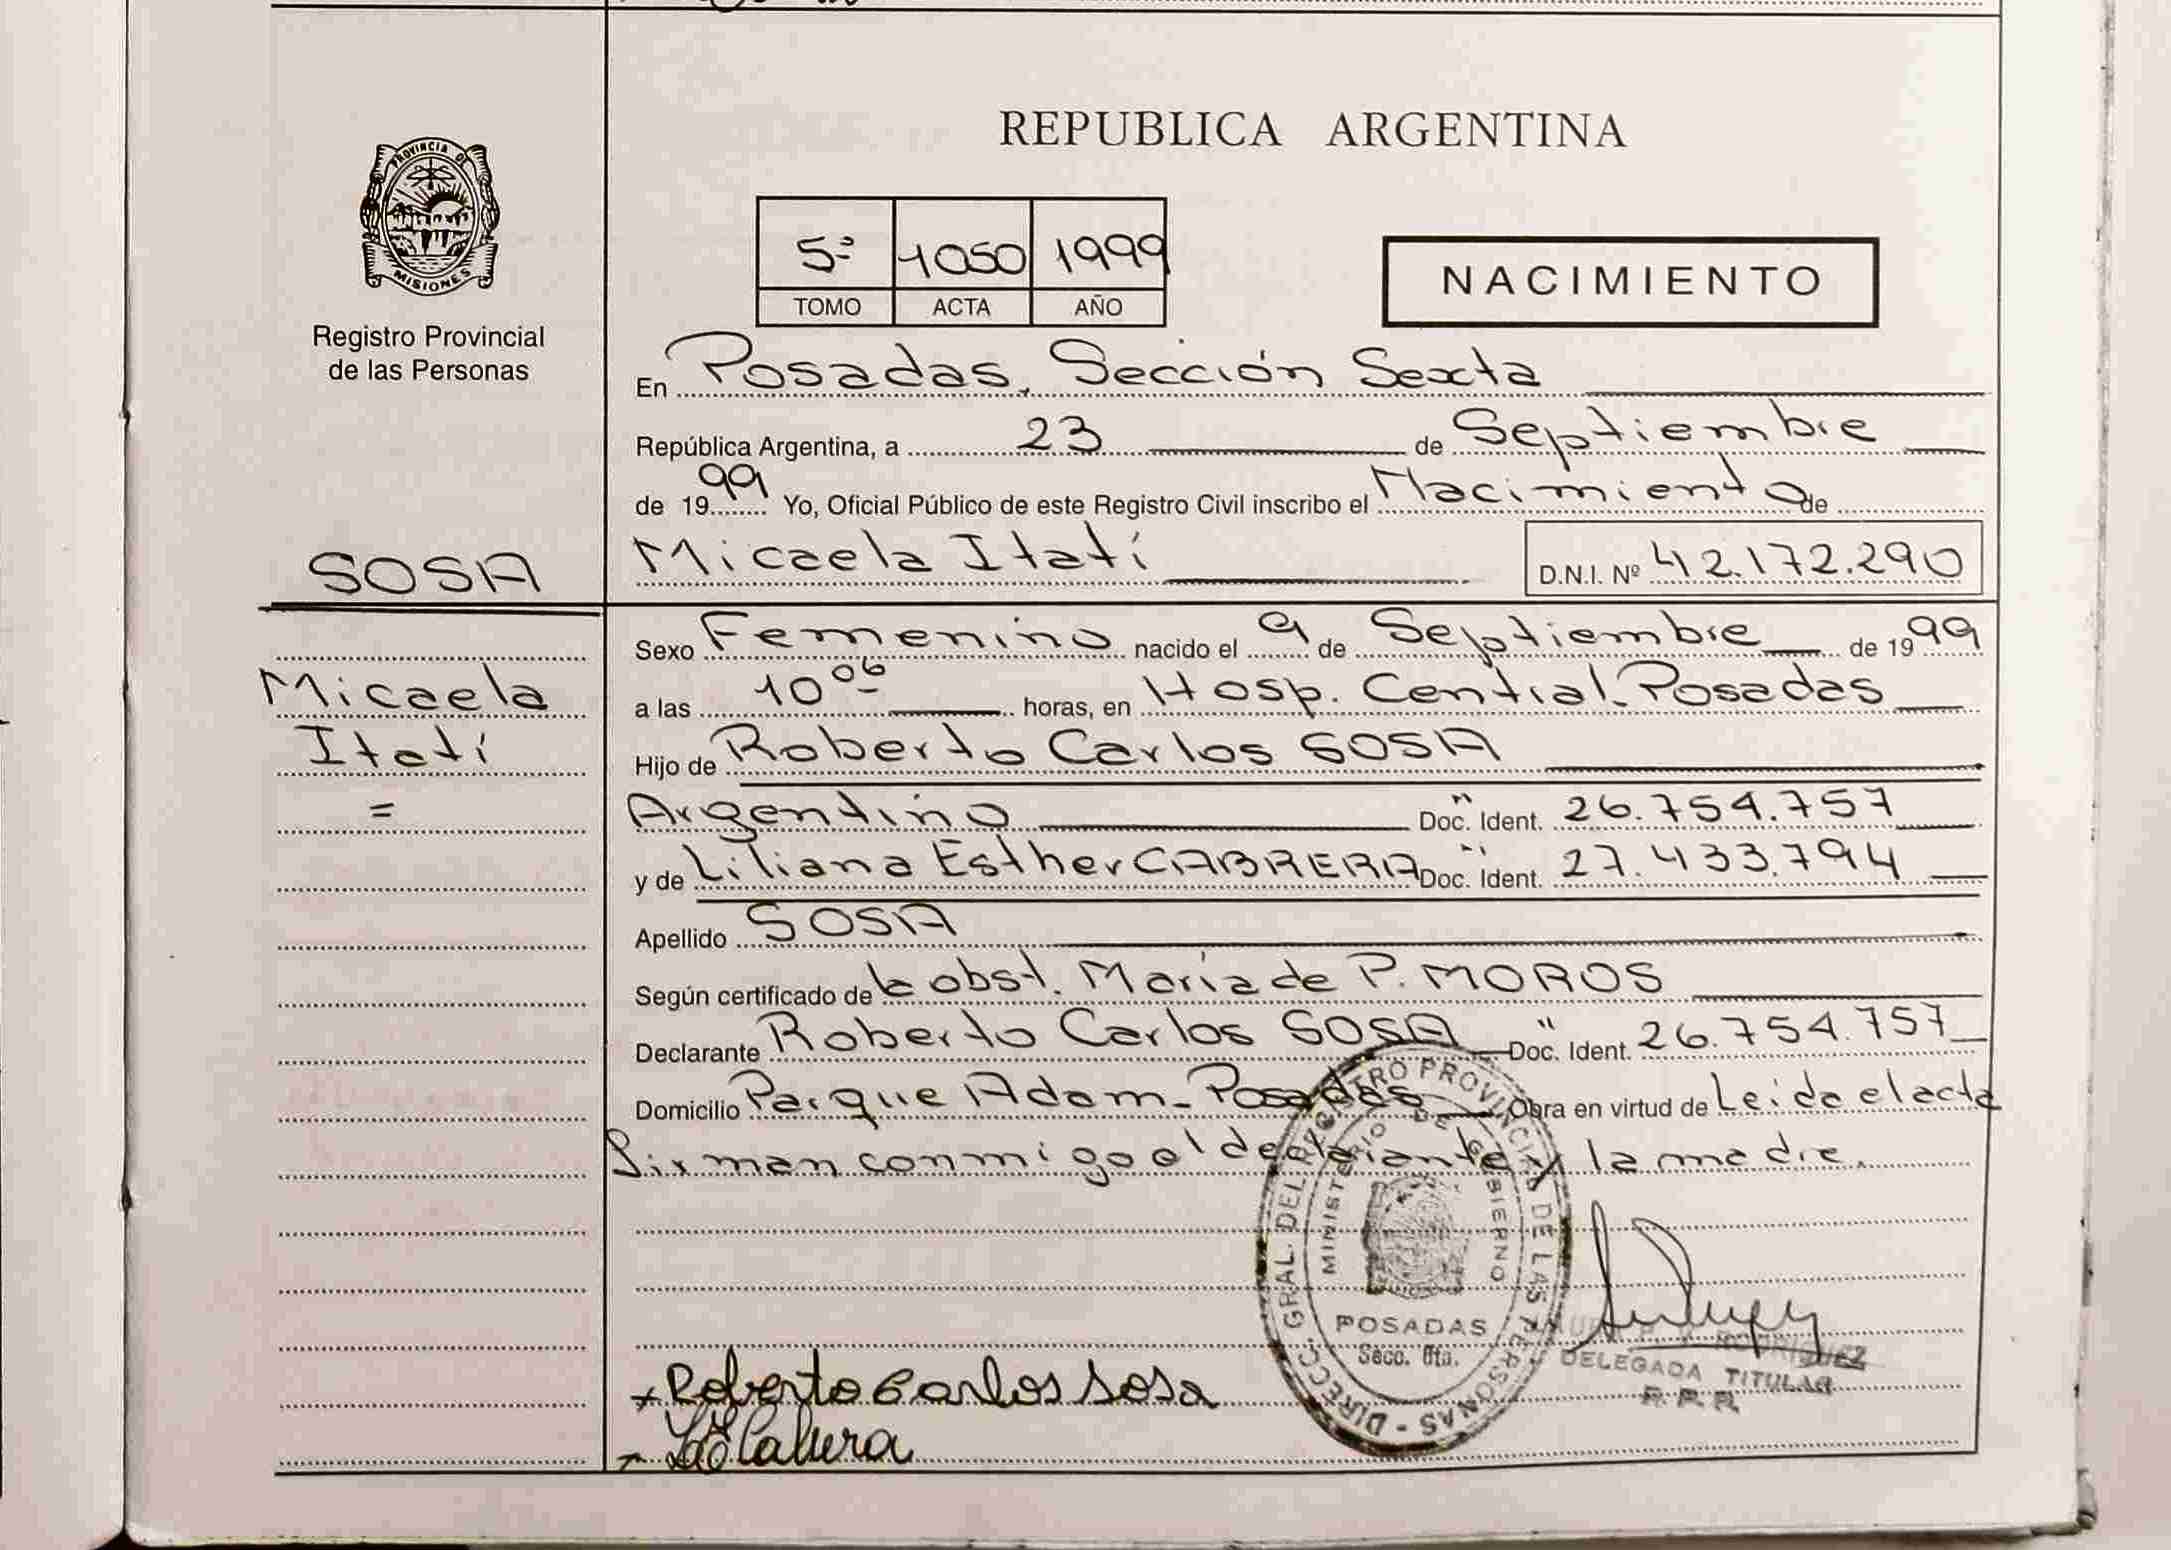 REPUBLICA ARGENTINA
PROVINCIA DE
MISIONES
Registro Provincial
de las Personas
5ª 1050 1999
TOMO ACTA AÑO
NACIMIENTO
En Posadas, Sección Sexta
República Argentina, a 23 de Septiembre
de 1999 Yo, Oficial Público de este Registro Civil inscribo el Nacimiento de
SOSA
Micaela Itatí D.N.I. Nº 42.172.290
Micaela
Itatí
=
Sexo Femenino nacido el 9 de Septiembre de 1999
a las 10 06 horas, en Hosp. Central. Posadas
Hijo de Roberto Carlos SOSA
Argentino Doc. " Ident. 26.754.757
y de Liliana Esther CABRERA Doc. " Ident. 27.433.794
Apellido SOSA
Según certificado de la obst. María de P. MOROS
Declarante Roberto Carlos SOSA Doc. " Ident. 26.754.757
Domicilio Parque Adam - Posadas Obra en virtud de Leida el acta
firman conmigo el declarante y la madre.
DIRECC. GRAL. DEL REGISTRO PROVINCIAL DE LAS PERSONAS -
MINISTERIO DE GOBIERNO
POSADAS
Secc. 6ta.
RODRIGUEZ
DELEGADA TITULAR
R.P.P.
Roberto Carlos Sosa
LECabrera